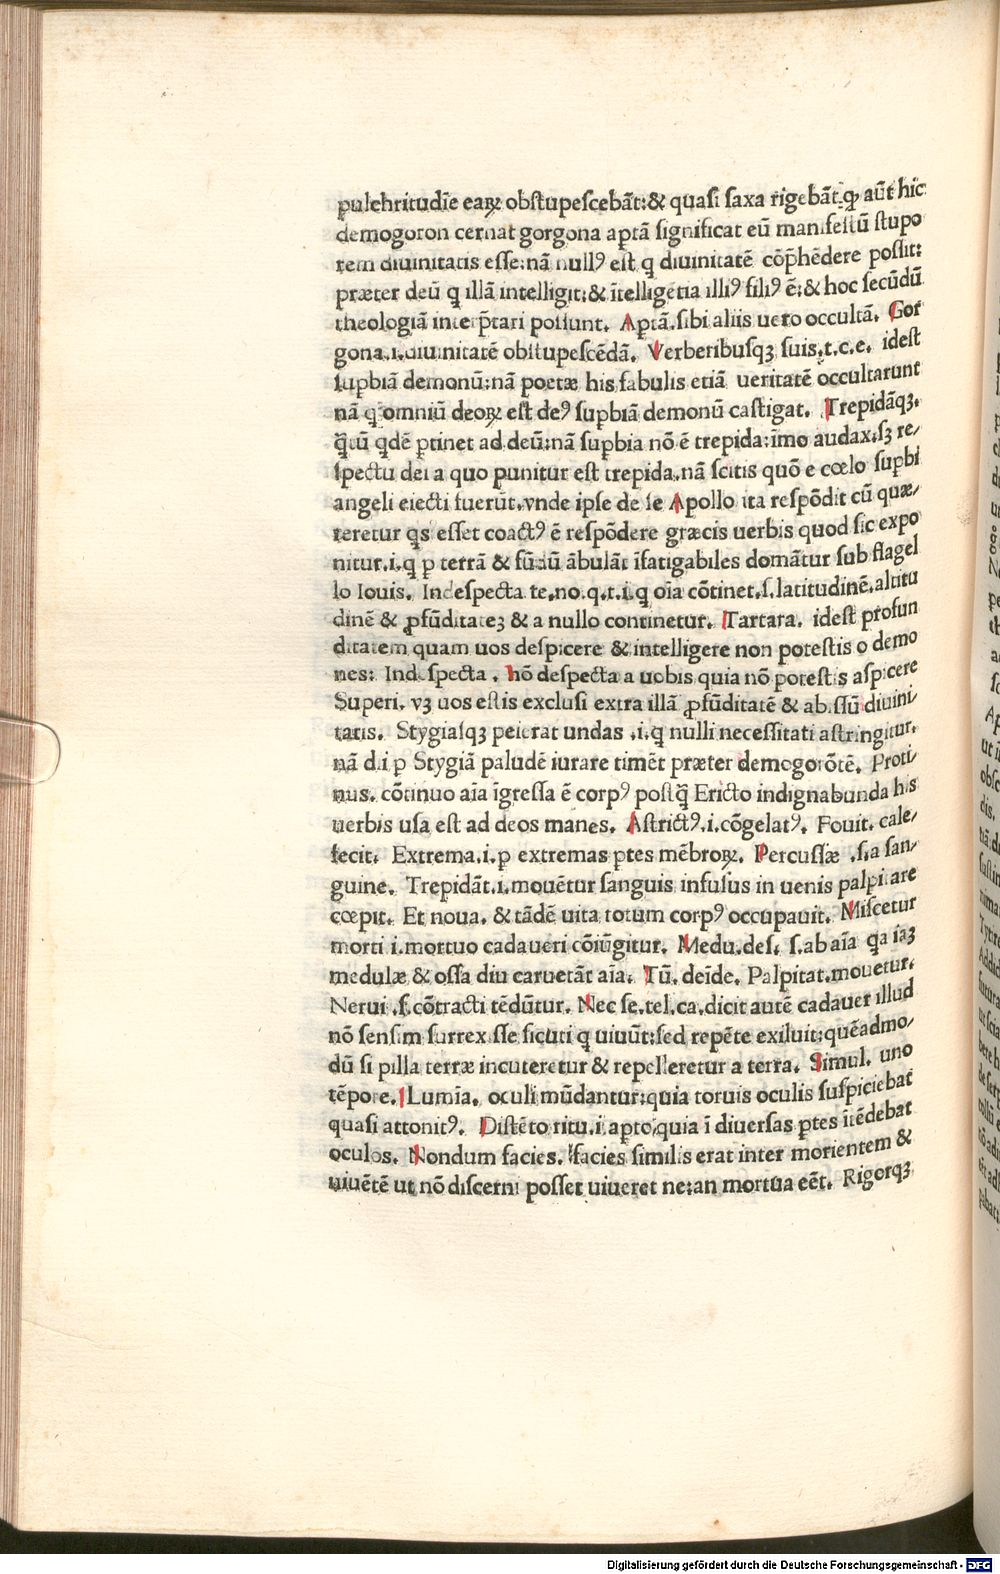 pulchritudīe eaꝝ obſtupeſcebāt:& quaſi ſaxa rigebāt.ꝙ aūt hic
demogoron cernat gorgona aptā ſignificat eū manifeſtū ſtupo
rem diuinitatis eſſe:nā nullꝰ eſt q diuinitatē cōp̄hēdere poſſit:
præter deū q illā intelligit:& ītelligētia illiꝰ filiꝰ ē:& hoc ſecūdū
theologiā interp̄tari poſſunt. Aptā.ſibi aliis uero occultā. Gor
gona.i.diuinitatē obſtupeſcēdā. Verberibuſqꝫ ſuis.t.c.e. ideſt
ſupbiā demonū:nā poetæ his fabulis etiā ueritatē occultarunt
nā q omniū deoꝝ eſt deꝰ ſupbiā demonū caſtigat. Trepidāqꝫ.
q̄tū qdē ꝑtinet ad deū:nā ſupbia nō ē trepida:īmo audax.ſꝫ re/
ſpectu dei a quo punitur eſt trepida.nā ſcitis quō e cœlo ſupbi
angeli eiecti fuerūt.vnde ipſe de ſe Apollo ita reſpōdit cū quæ/
reretur qs eſſet coactꝰ ē reſpōdere græcis uerbis quod ſic expo
nitur.i.q ꝑ terrā & fūdū ābulāt īfatigabiles domātur ſub flagel
lo Iouis. Indeſpecta te.no.q.t.i.q oīa cōtinet.ſ.latitudinē.altitu
dinē & ꝓfūditateꝫ & a nullo continetur. Tartara. ideſt profun
ditatem quam uos deſpicere & intelligere non poteſtis o demo
nes: Indeſpecta . nō deſpecta a uobis quia nō poteſtis aſpicere
Superi. vꝫ uos eſtis excluſi extra illā ꝓfūditatē & abiſſū diuini/
tatis. Stygiaſqꝫ peierat undas .i.q nulli neceſſitati aſtringitur.
nā dii ꝑ Stygiā paludē iurare timēt præter demogorōtē. Proti/
nus. cōtinuo aīa īgreſſa ē corpꝰ poſtq̄ Ericto indignabunda his
uerbis uſa eſt ad deos manes. Aſtrictꝰ.i.cōgelatꝰ. Fouit. cale/
fecit. Extrema.i.ꝑ extremas ꝑtes mēbroꝝ. Percuſſæ .ſ.a ſan/
guine. Trepidāt.i.mouētur ſanguis infuſus in uenis palpitare
cœpit. Et noua. & tādē uita totum corpꝰ occupauit. Miſcetur
morti i.mortuo cadaueri cōiūgitur. Medu.deſ. ſ.ab aīa qa iaꝫ
medulæ & oſſa diu caruetāt aīa. Tū. deīde. Palpitat.mouetur.
Nerui .ſ.cōtracti tēdūtur. Nec ſe.tel.ca.dicit autē cadauer illud
nō ſenſim ſurrexiſſe ſicuti q uiuūt:ſed repēte exiluit:quēadmo/
dū ſi pilla terræ incuteretur & repelleretur a terra. Simul. uno
tēpore. Lumīa. oculi mūdantur:quia toruis oculis ſuſpiciebat
quaſi attonitꝰ. Diſtēto ritu.i apto,quia ī diuerſas ꝑtes ītēdebat
oculos. Nondum facies. facies ſimilis erat inter morientem &
uiuētē ut nō diſcerni poſſet uiueret ne:an mortua eēt. Rigorqꝫ
Digitalisierung gefördert durch die Deutsche Forschungsgemeinschaft - DFG